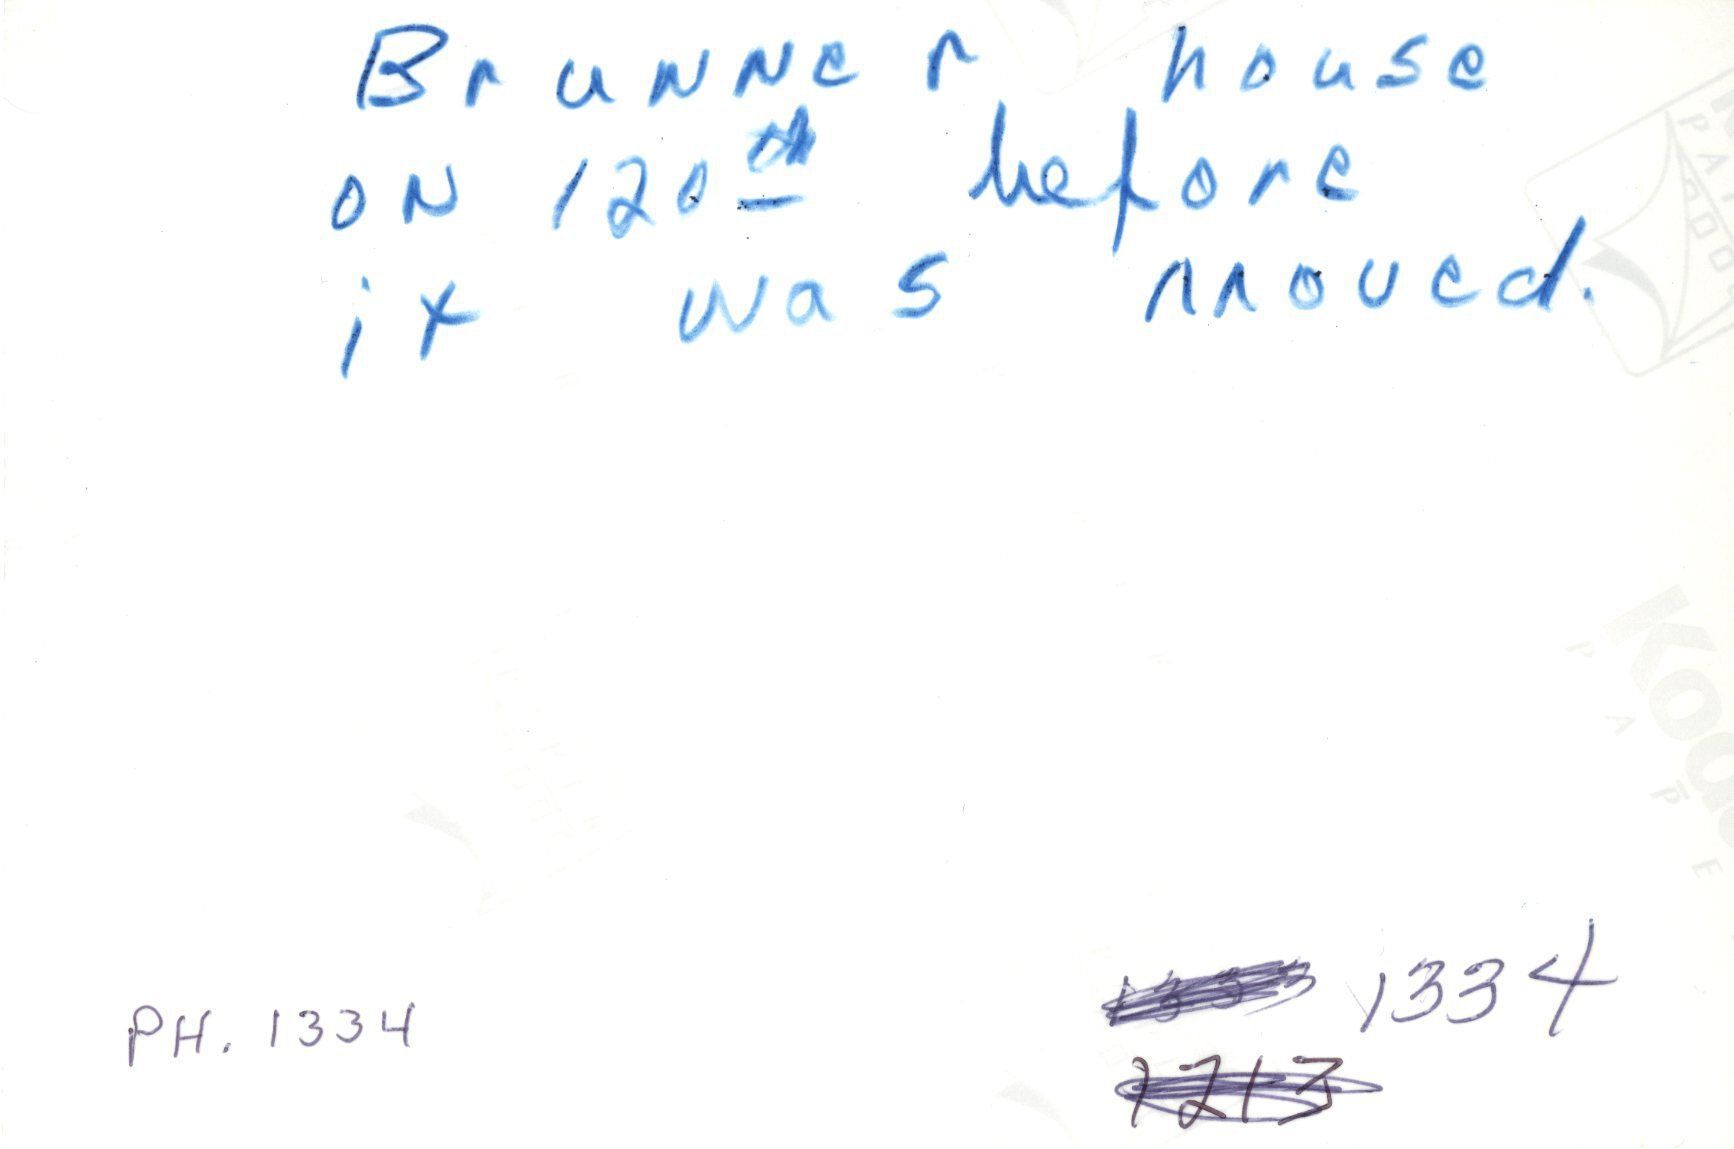 Brunner house
on 120th before
it was moved.
PH. 1334
1333 1334
1213
Kodak